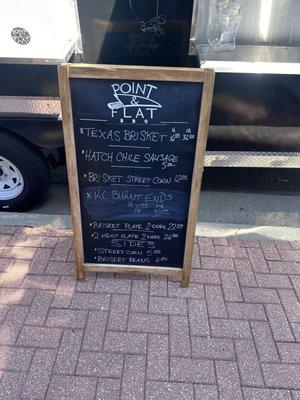 POINT
&
FLAT
BBQ
* TEXAS BRISKET ½ 16.00 1LB 32.00
* HATCH CHILE SAUSAGE
5.00
* BRISKET STREET CORN 12.00
* KC BURNT ENDS
½ 16.00 1LB 32.00
* BRISKET PLATE 2 SIDES 22.00
* 2 MEAT PLATE 2 SIDES 26.00
SIDES
STREET CORN 5.00
BRISKET BEANS 6.00